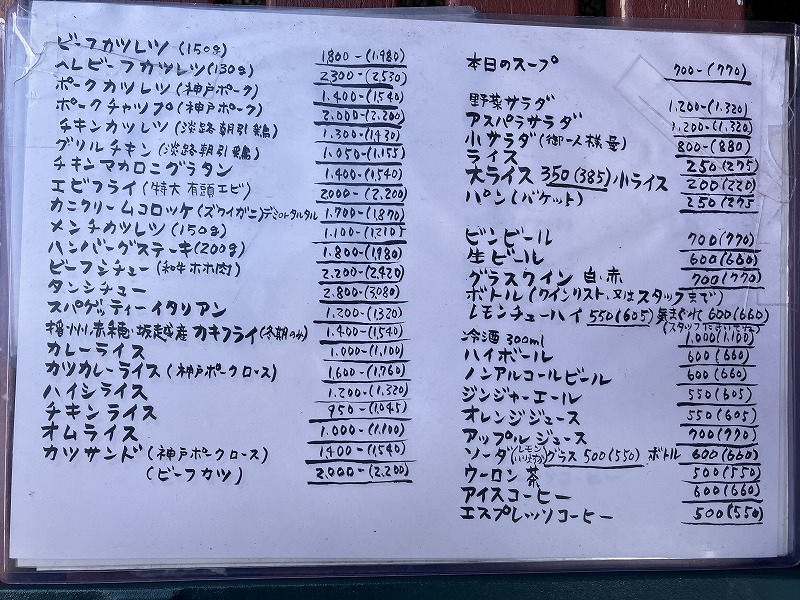 ビーフカツレツ (150g) 1,800-(1,980)
ヘレビーフカツレツ(130g) 2,300-(2,530)
ポークカツレツ (神戸ポーク) 1,400-(1,540)
ポークチャップ (神戸ポーク) 2,000-(2,200)
チキンカツレツ (淡路朝引鶏) 1,300-(1,430)
グリルチキン (淡路朝引鶏) 1,050-(1,155)
チキンマカロニグラタン 1,400-(1,540)
エビフライ (特大 有頭エビ) 2000-(2,200)
カニクリームコロッケ(ズワイガニ)デミorタルタル 1,700-(1,870)
メンチカツレツ (150g) 1,100-(1,210)
ハンバーグステーキ(200g) 1,800-(1,980)
ビーフシチュー (和牛ホホ肉) 2,200-(2,420)
タンシチュー 2,800-(3,080)
スパゲッティーイタリアン 1,200-(1320)
播州赤穂・坂越産カキフライ(冬期のみ) 1,400-(1,540)
カレーライス 1,000-(1,100)
カツカレーライス (神戸ポークロース) 1,600-(1,760)
ハイシライス 1,200-(1,320)
チキンライス 950-(1,045)
オムライス 1,000-(1,100)
カツサンド (神戸ポークロース) 1,400-(1,540)
(ビーフカツ) 2,000-(2,200)
本日のスープ 700-(770)
野菜サラダ 1,200-(1,320)
アスパラサラダ 1,200-(1,320)
小サラダ (御一人様量) 800-(880)
ライス 250(275)
大ライス 350(385) 小ライス 200(220)
パン (バケット) 250(275
ビンビール 700(770)
生ビール 600(660)
グラスワイン 白・赤 700(770)
ボトル (ワインリスト、又はスタッフまで)
レモンチューハイ 550(605) 気まぐれ 600(660)
(スタッフにおたずね下さい)
冷酒 300ml 1,000(1,100)
ハイボール 600(660)
ノンアルコールビール 600(660)
ジンジャーエール 550(605)
オレンジジュース 550(605)
アップルジュース 700(770)
ソーダ(レモン入ります)グラス 500(550) ボトル 600(660)
ウーロン茶 500(550)
アイスコーヒー 600(660)
エスプレッソコーヒー 500(550)